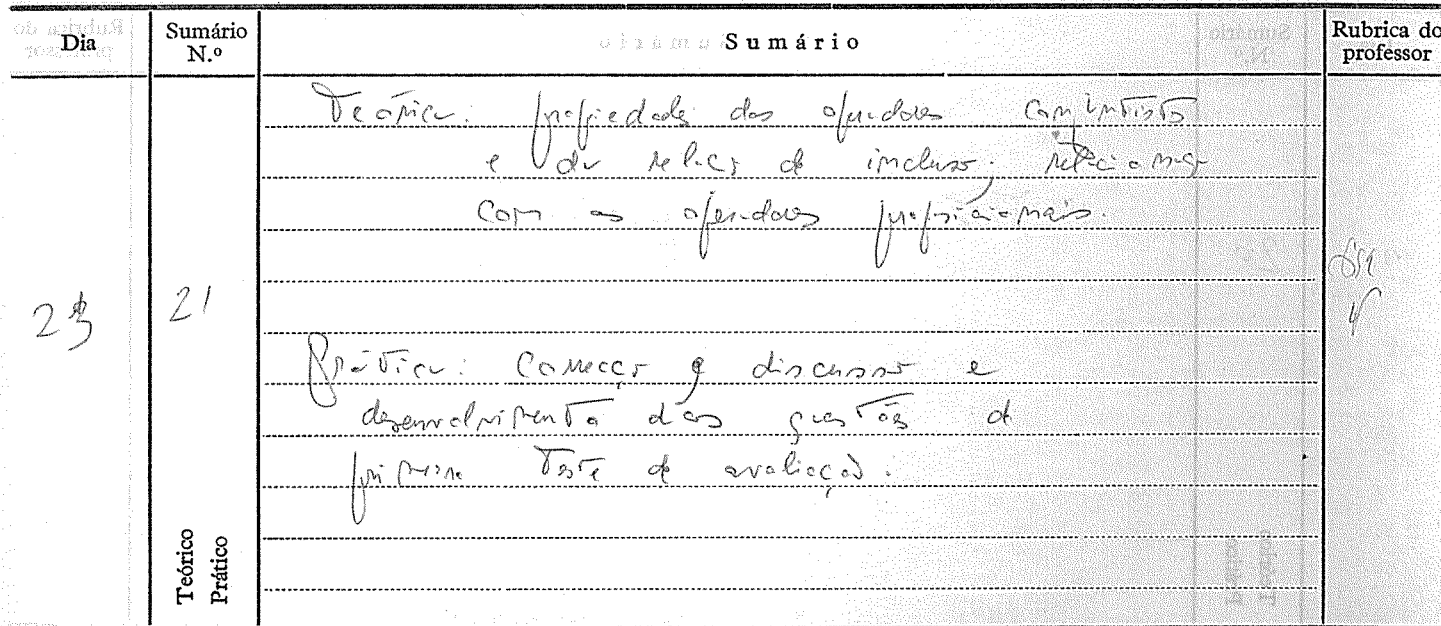 Dia
Sumário N.º
Sumário
Rubrica do professor
Teórica: propriedades dos operadores conjuntistas
e da relação de inclusão; relacionação
com os operadores proposicionais.
23
21
Prática: Começar a discussão e
desenvolvimento das questões do
primeiro teste de avaliação.
Teórico
Prático